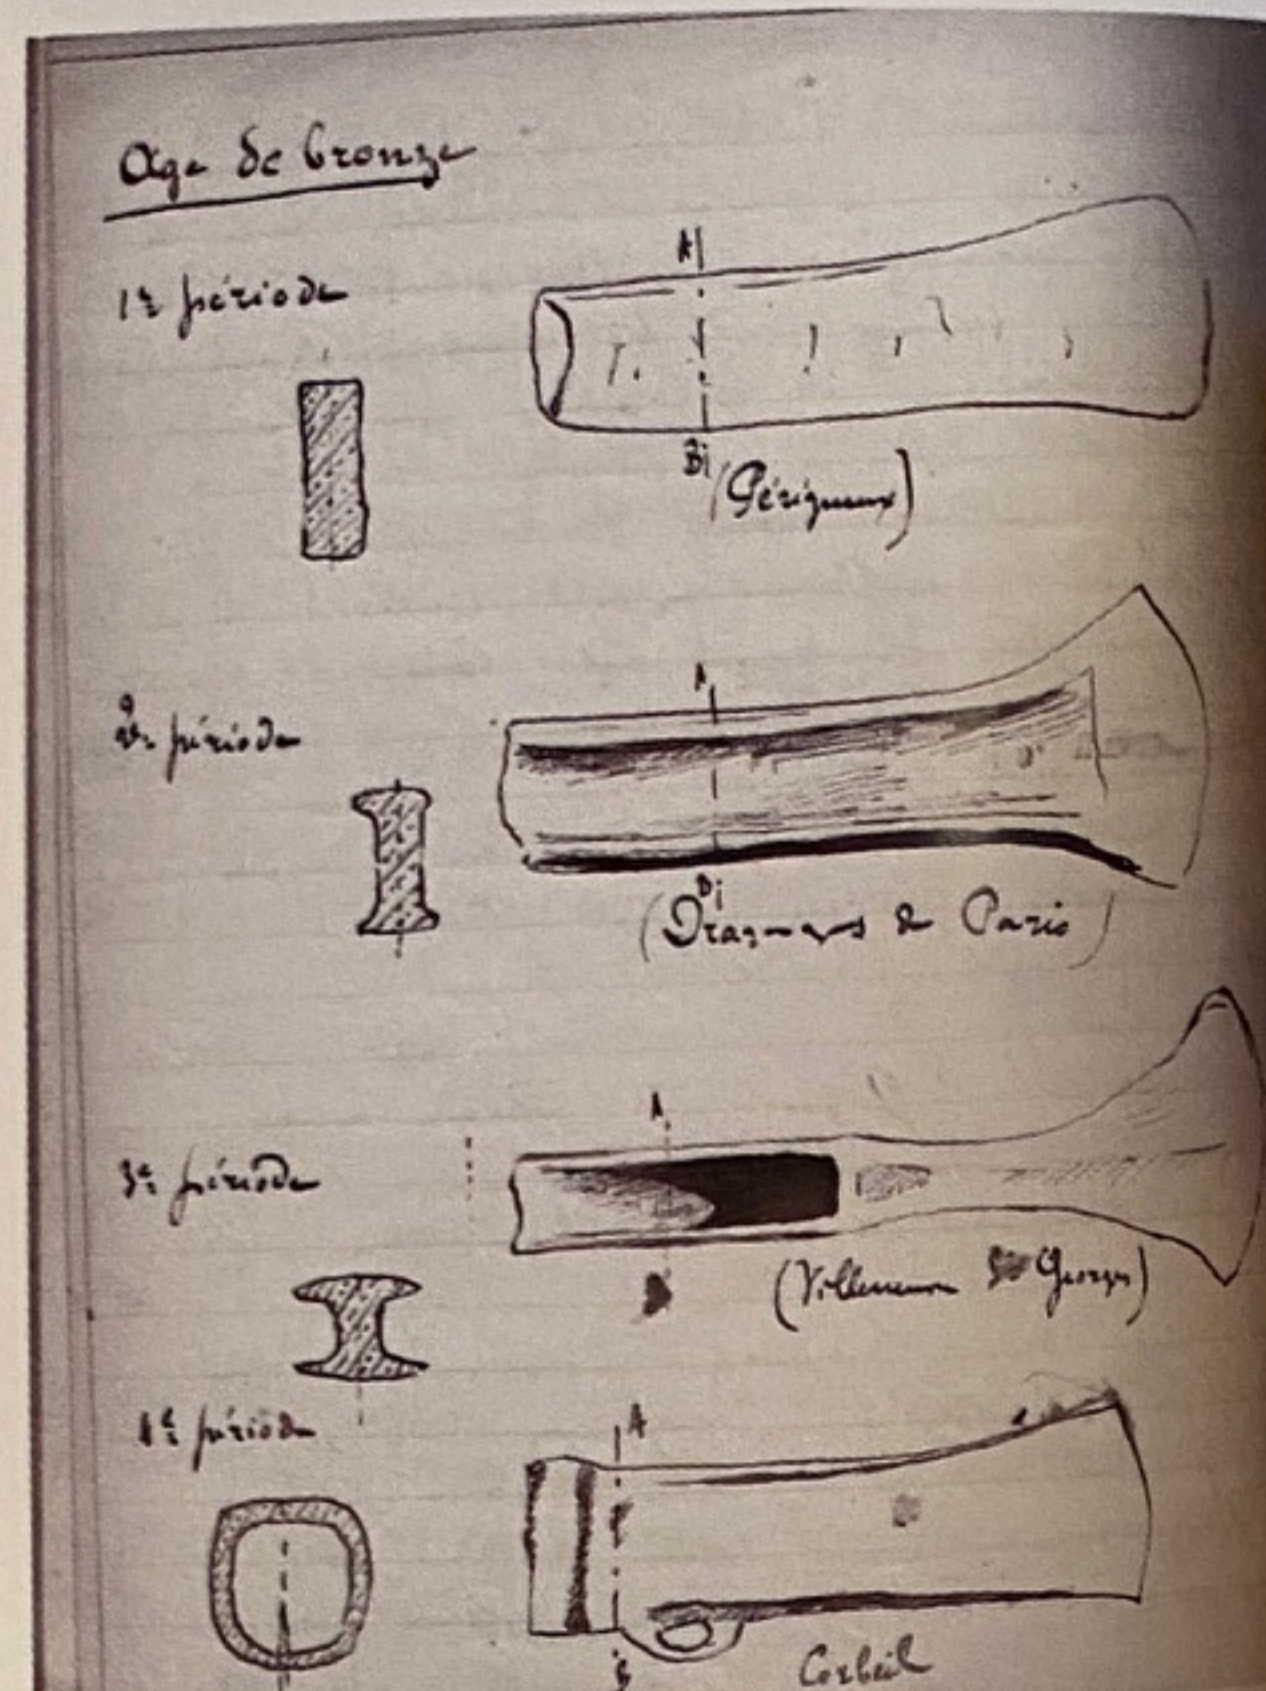 Age de bronze
1re période
A
B
(Périgueux)
2e période
A
B
(Dragages de Paris)
3e période
A
(Villeneuve St Georges)
4e période
A
B
Corbeil